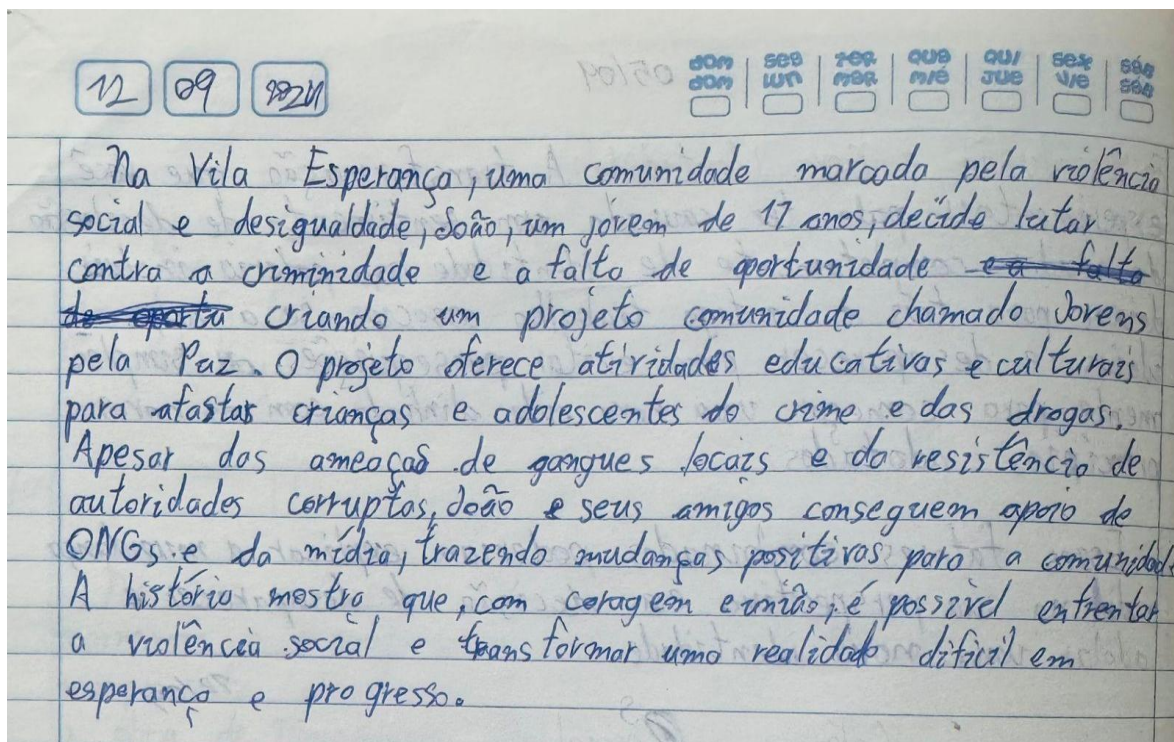 12 09 2024
dom seg ter qua qui sex sáb
dom lun mar mié jue vie sáb
Na Vila Esperança, uma comunidade marcada pela violência
social e desigualdade, João, um jovem de 17 anos, decide lutar
contra a criminidade e a falta de oportunidade e a falta
de oportu criando um projeto comunidade chamado Jovens
pela Paz. O projeto oferece atividades educativas e culturais
para afastar crianças e adolescentes do crime e das drogas.
Apesar das ameaças de gangues locais e da resistência de
autoridades corruptas, João e seus amigos conseguem apoio de
ONGs e da mídia, trazendo mudanças positivas para a comunidade
A história mostra que, com coragem e união, é possível enfrentar
a violência social e transformar uma realidade difícil em
esperança e progresso.